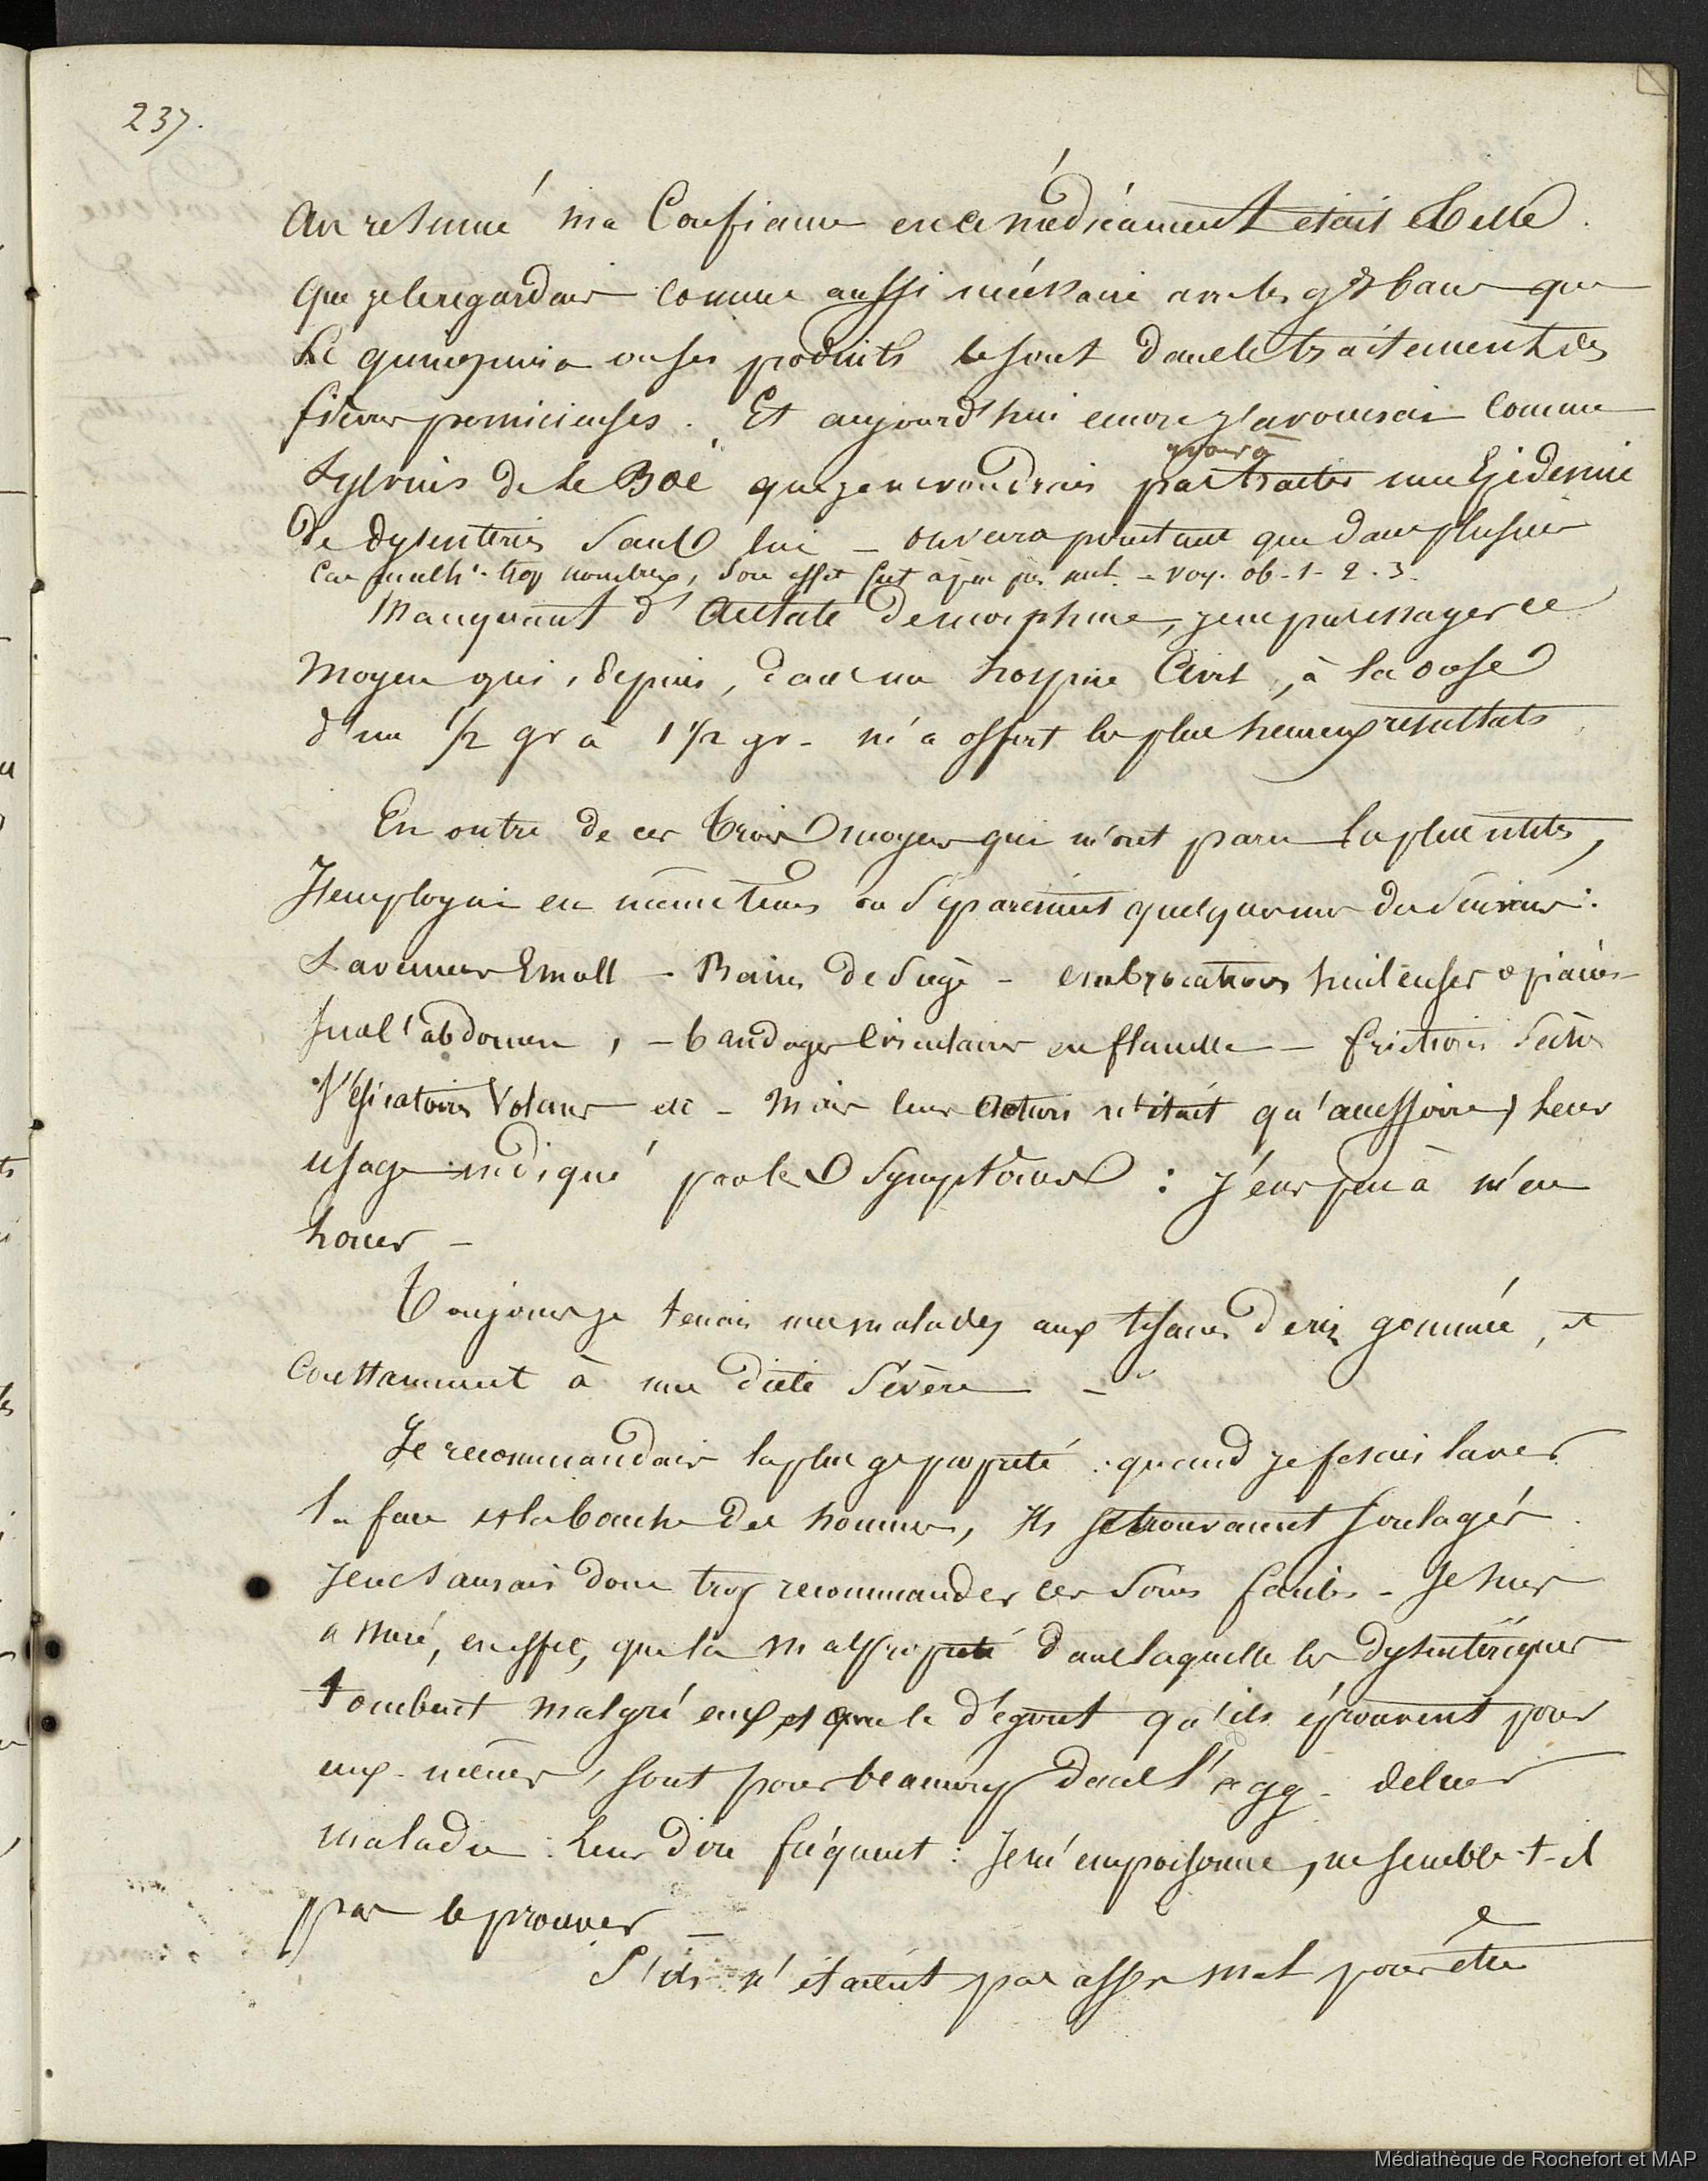 237.
Au resumé ma Confiance en ce médicament était telle.
Que je le regardais comme aussi nécessaire que
le quinquina ou ses produits le sont dans le traitement des
fièvres pernicieuses. Et aujourd'hui encore j'avouerai comme
Sylvius de le Boë que je ne voudrais pas avoir à traiter une Epidemie
de dysenteries Sans lui – on verra pourtant que dans plusieurs
Cas malh.t trop nombreux, Son effet fut à peu près nul. – voy. ob. 1. 2. 3.
Manquant d'Acétate de morphine, je ne pus essayer ce
moyen qui, depuis, dans un hospice Civil, à la dose
d'un 1/2 gr à 1 1/2 gr. m'a offert les plus heureux resultats
En outre de ces trois moyens qui m'ont paru les plus utiles,
J'employai en même tems ou Séparément quelques uns des Suivans:
Lavemens Emoll – Bains de Siège – embrocations huileuses opiacées
sur l'abdomen, – bandages Circulaires en flanelle – frictions Sèches
Vésicatoires Volans etc – Mais leur Action n'était qu'accessoire, leur
usage indiqué par les Symptômes : J'eus peu à m'en
louer –
Toujours je tenais mes malades aux tisanes de riz gommée, et
Constamment à une diète Sévère –
Je recommandais la plus gde propreté. quand je fesais laver
la face et la bouche des hommes, Ils se trouvaient soulagés.
Je ne Saurais donc trop recommander ces Soins faciles – Je suis
assuré, en effet, que la malpropreté dans laquelle les dysentériques
tombent malgré eux, et que le dégout qu'ils éprouvent pour
eux-mêmes, sont pour beaucoup dans l'agg. de leur
maladie : leur dire fréquent : Je m'empoisonne, ne semble-t-il
pas le prouver –
S'ils n'étaient pas assez mal pour être
Médiathèque de Rochefort et MAP